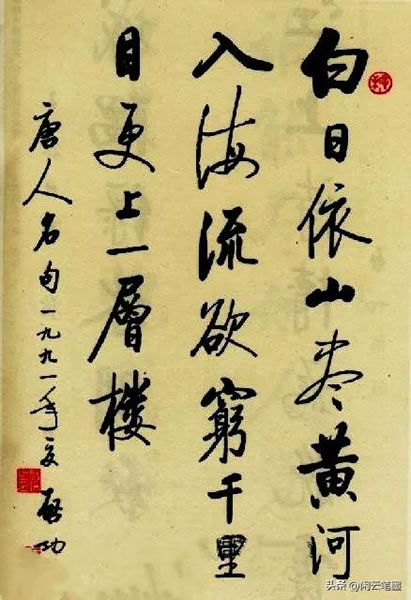 白日依山尽黄河
入海流欲窮千里
目更上一層樓
唐人名句一九九一年夏 启功
头条@闲云笔墨